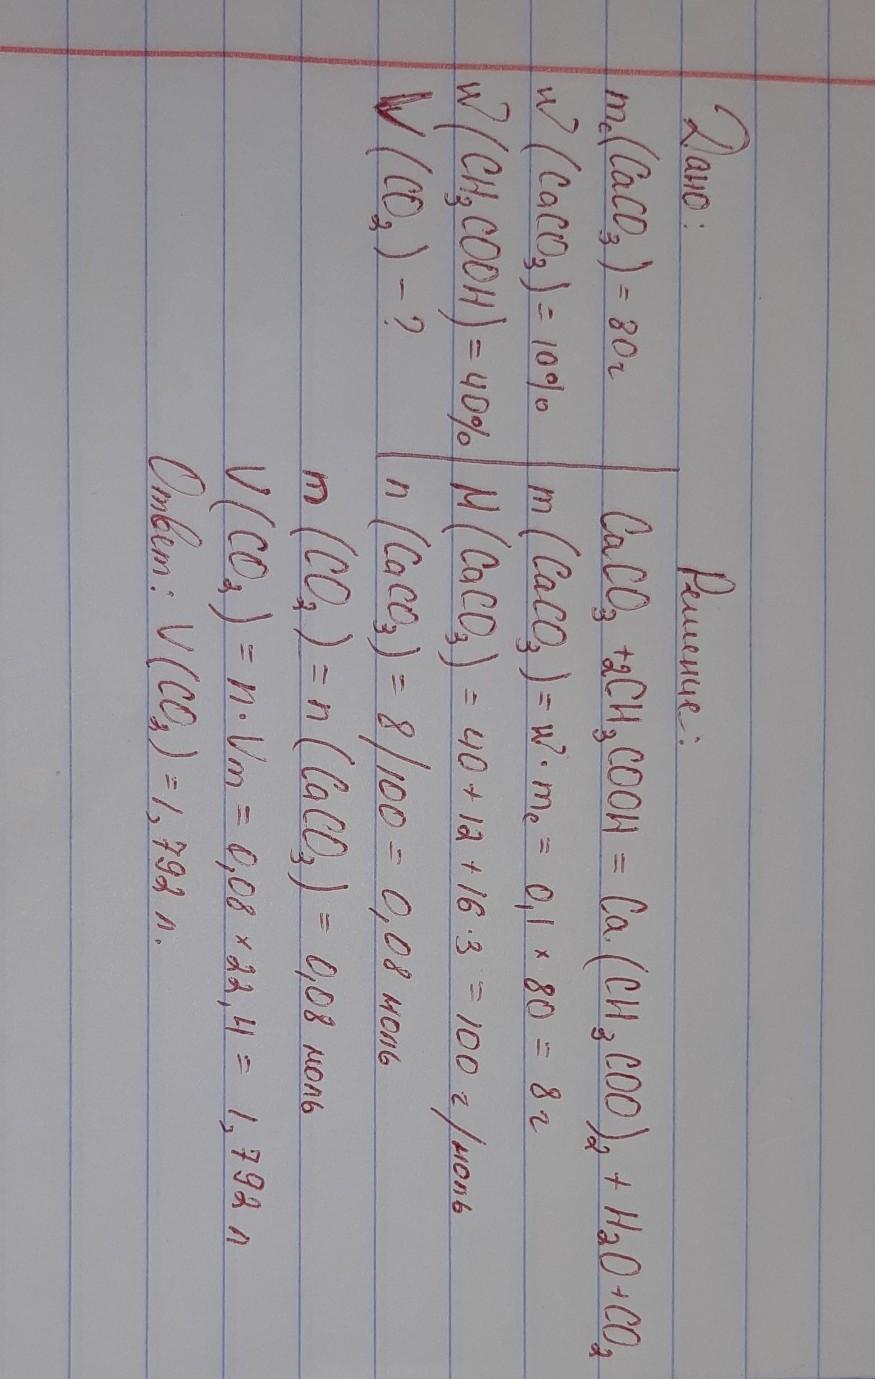 Дано:
mc(CaCO3) = 80г
w(CaCO3) = 10%
w(CH3COOH) = 40%
V(CO2) - ?
Решение:
CaCO3 + 2CH3COOH = Ca(CH3COO)2 + H2O + CO2
m(CaCO3) = w · mc = 0,1 × 80 = 8г
M(CaCO3) = 40 + 12 + 16·3 = 100 г/моль
n(CaCO3) = 8/100 = 0,08 моль
m(CO2) = n(CaCO3) = 0,08 моль
V(CO2) = n · Vm = 0,08 × 22,4 = 1,792 л
Ответ: V(CO2) = 1,792 л.